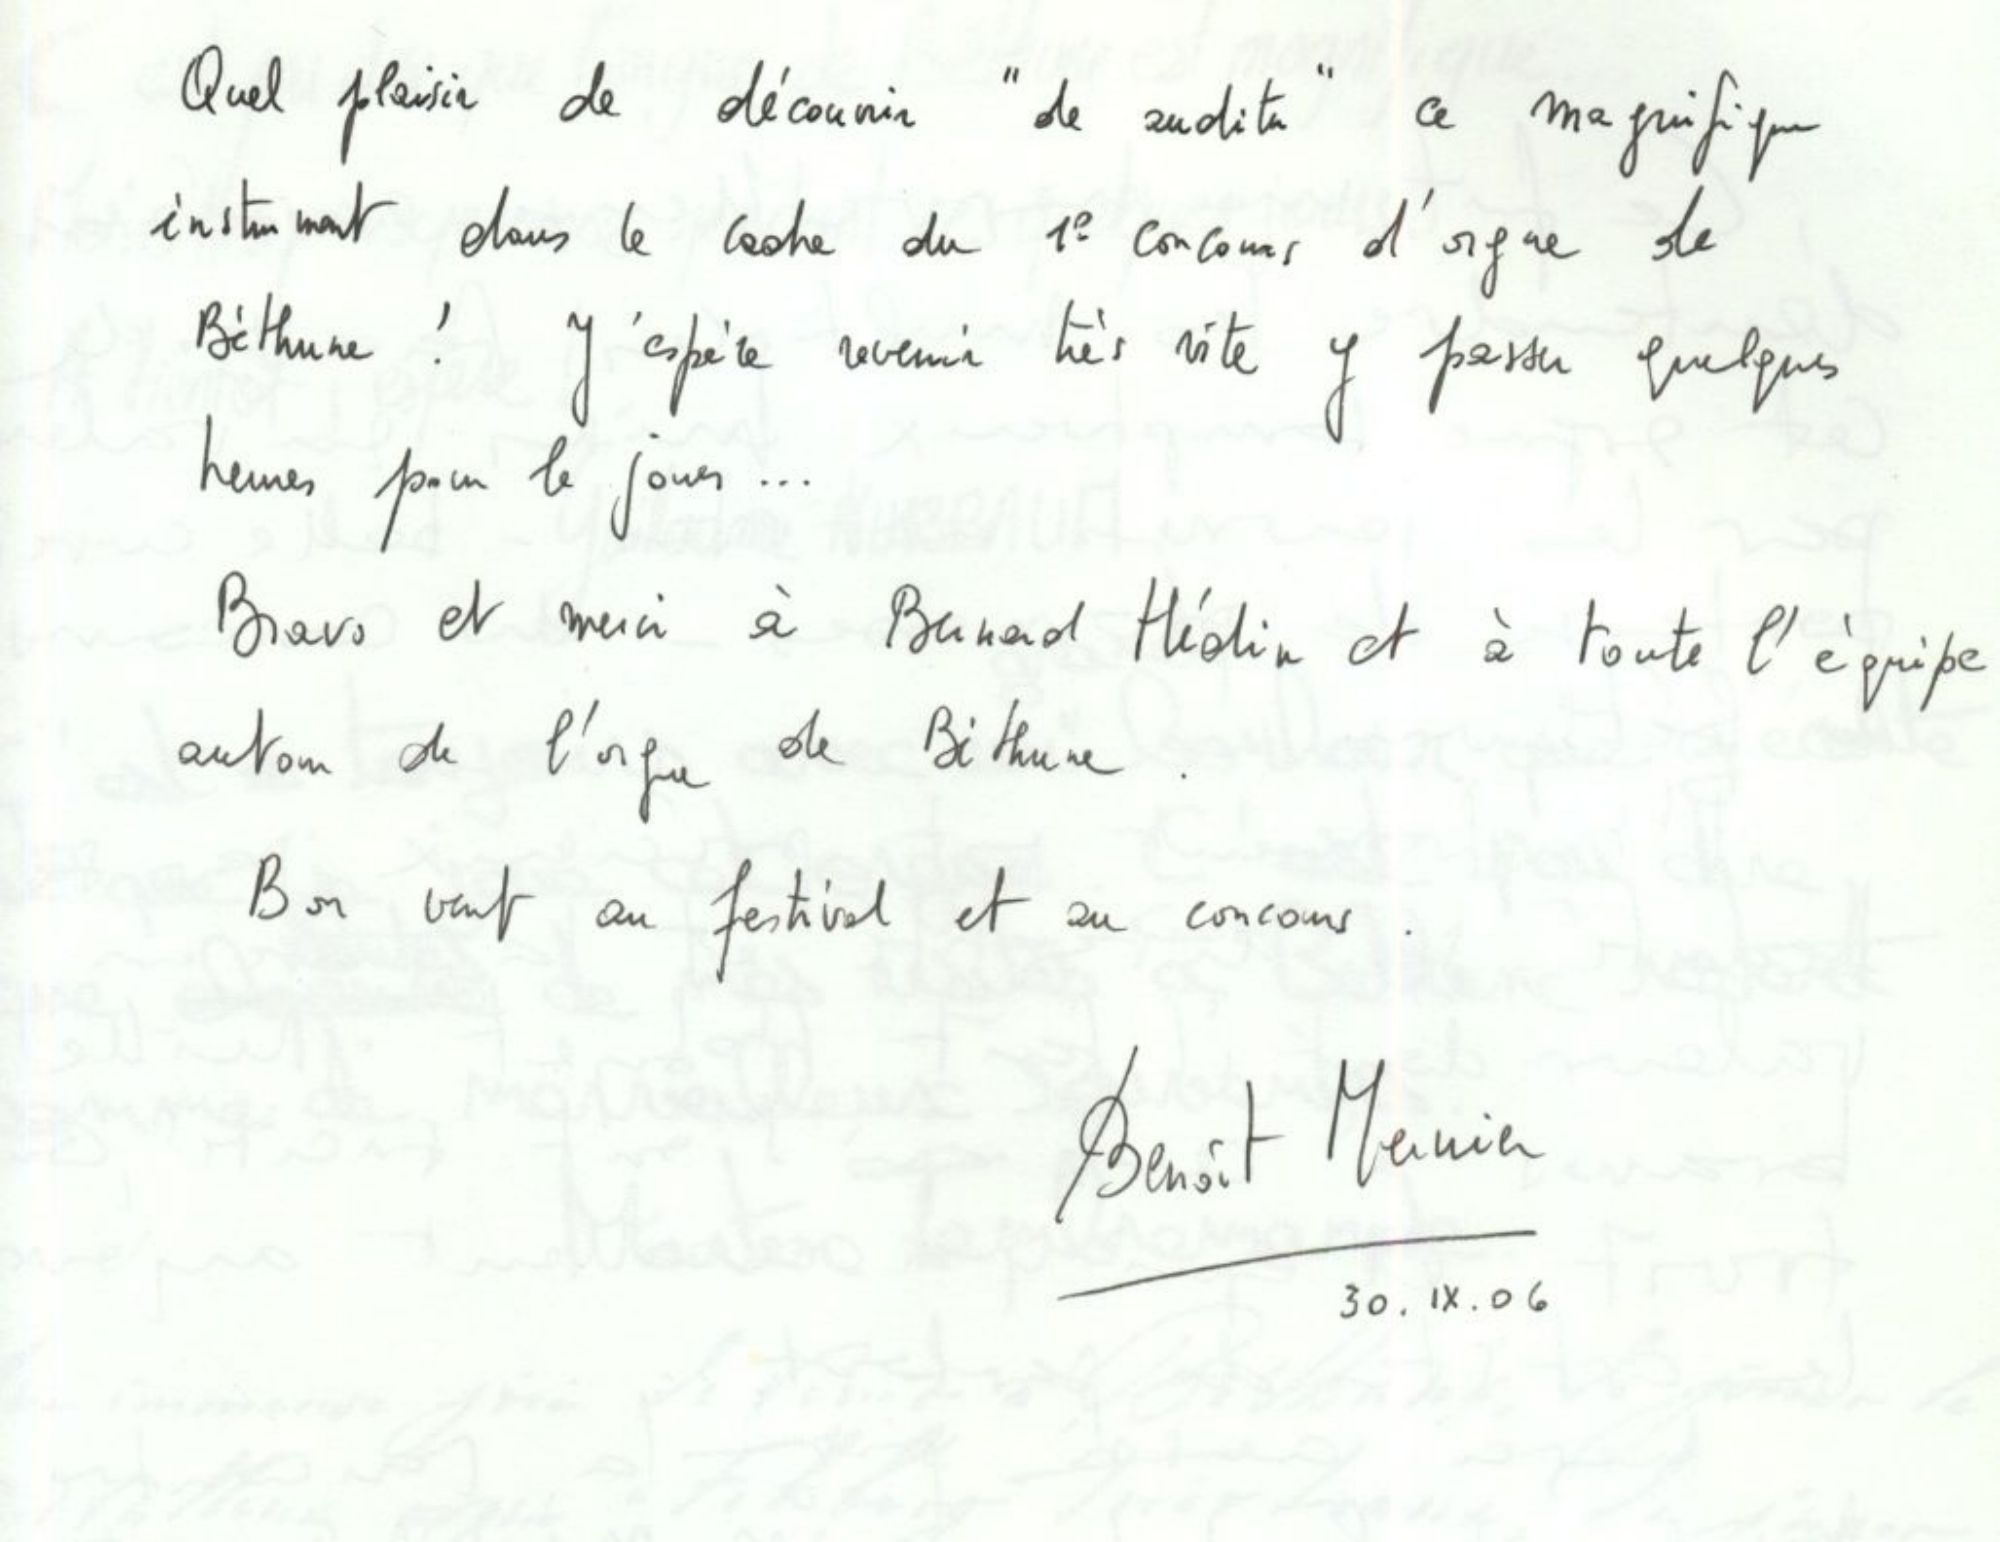 Quel plaisir de découvrir "de auditu" ce magnifique
instrument dans le cadre du 1e concours d'orgue de
Béthune ! J'espère revenir très vite y passer quelques
heures pour le jouer ...
Bravo et merci à Bernard Hédin et à toute l'équipe
autour de l'orgue de Béthune.
Bon vent au festival et au concours.
Benoît Mernier
30.IX.06